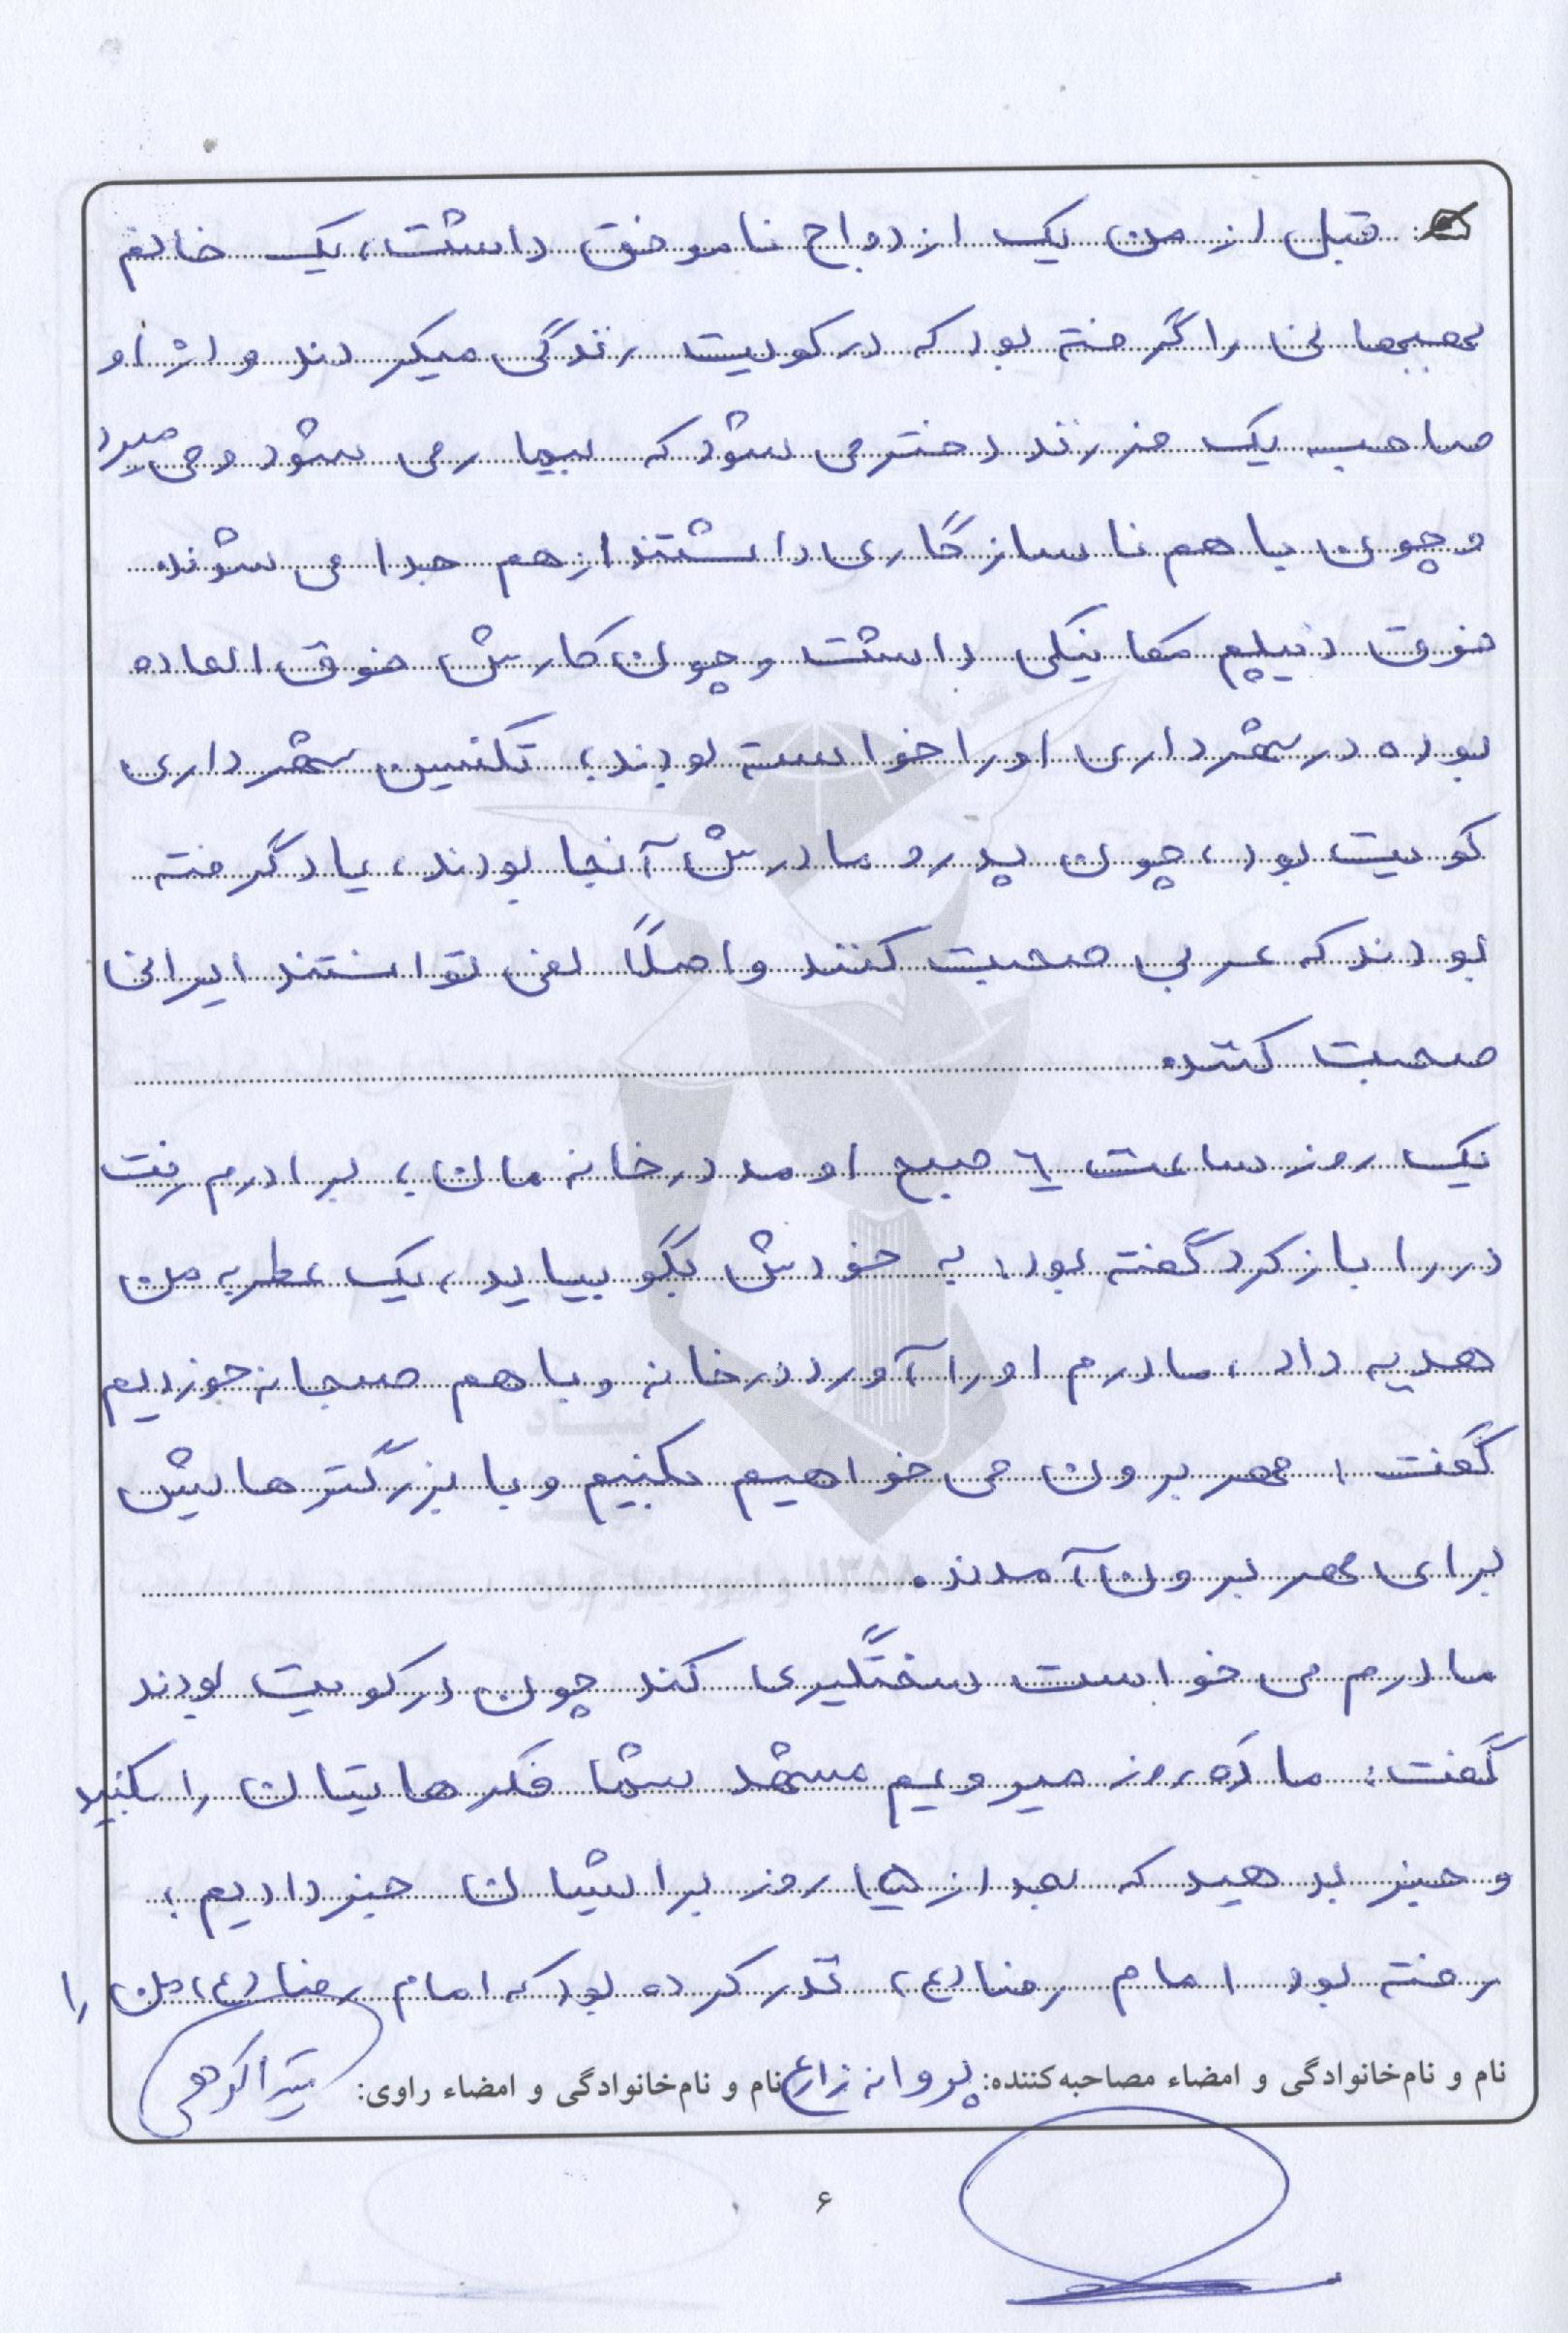 قبل از من یک ازدواج ناموفق داشت، یک خانم
بهبهانی را گرفته بود که در کویت زندگی میکردند و از او
صاحب یک فرزند دختر می شود که بیمار می شود و می میرد
و چون با هم ناسازگاری داشتند از هم جدا می شوند.
فوق دیپلم مکانیکی داشت و چون کارش فوق العاده
بوده در شهرداری او را خواسته بودند، تکنسین شهرداری
کویت بود، چون پدر و مادرش آنجا بودند، یاد گرفته
بودند که عربی صحبت کنند و اصلاً نمی توانستند ایرانی
صحبت کنند.
یک روز ساعت ٦ صبح اومد در خانه مان، برادرم رفت
در را باز کرد گفته بود: به خودش بگو بیاید، یک عطر به من
هدیه داد، مادرم او را آورد در خانه و با هم صبحانه خوردیم
گفت: مهر برون می خواهیم بکنیم و با بزرگترهایش
برای مهر برون آمدند.
مادرم می خواست سختگیری کند چون در کویت بودند
گفت: ما ده روز میرویم مشهد شما فکرهایتان را بکنید
و خبر بدهید که بعد از ۱۵ روز برایشان خبر دادیم،
رفته بود امام رضا (ع)، نذر کرده بود که امام رضا (ع)، من را
نام و نام‌خانوادگی و امضاء مصاحبه‌کننده: پروانه زارع نام و نام‌خانوادگی و امضاء راوی:
۶